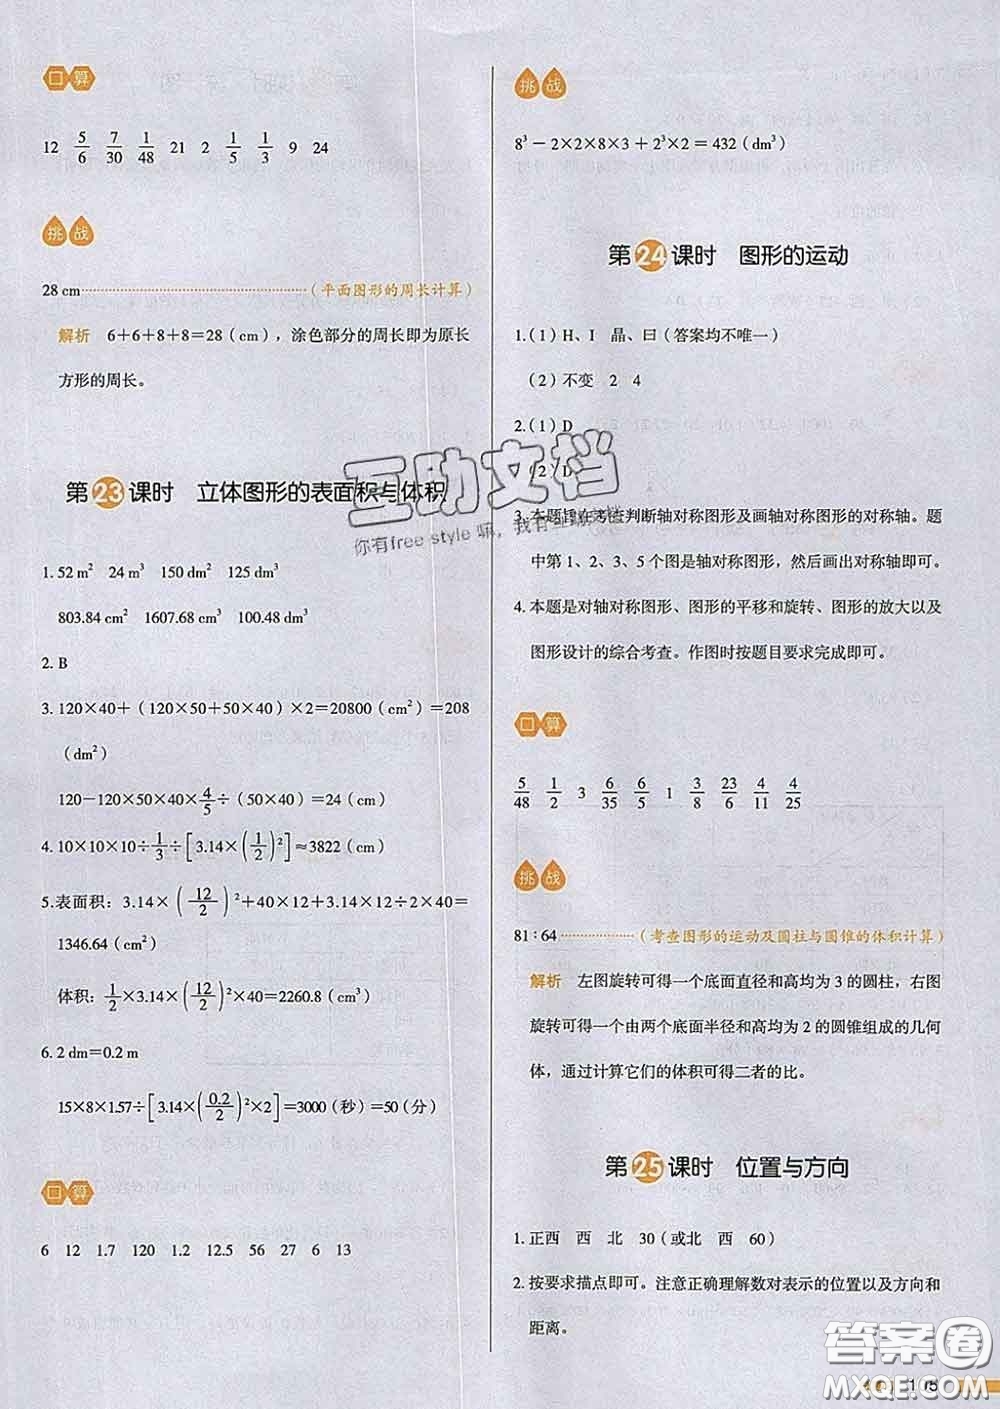 口算
12 5/6 7/30 1/48 21 2 1/5 1/3 9 24
挑战
28 cm……………………(平面图形的周长计算)
解析 6+6+8+8=28(cm),涂色部分的周长即为原长
方形的周长。
第23课时 立体图形的表面积与体积
1. 52 m² 24 m³ 150 dm² 125 dm³
803.84 cm² 1607.68 cm³ 100.48 dm³
2. B
3. 120×40+(120×50+50×40)×2=20800(cm²)=208
(dm²)
120-120×50×40×4/5÷(50×40)=24(cm)
4. 10×10×10÷1/3÷[3.14×(1/2)²]≈3822(cm)
5. 表面积:3.14×(12/2)²+40×12+3.14×12÷2×40=
1346.64(cm²)
体积:1/2×3.14×(12/2)²×40=2260.8(cm³)
6. 2 dm=0.2 m
15×8×1.57÷[3.14×(0.2/2)²×2]=3000(秒)=50(分)
口算
6 12 1.7 120 1.2 12.5 56 27 6 13
挑战
8³-2×2×8×3+2³×2=432(dm³)
第24课时 图形的运动
1. (1)H、I 晶、曰(答案均不唯一)
(2)不变 2 4
2. (1)D
(2)D
3. 本题旨在考查判断轴对称图形及画轴对称图形的对称轴。题
中第1、2、3、5个图是轴对称图形,然后画出对称轴即可。
4. 本题是对轴对称图形、图形的平移和旋转、图形的放大以及
图形设计的综合考查。作图时按题目要求完成即可。
口算
5/48 1/2 3 6/35 6/5 1 3/8 23/6 4/11 4/25
挑战
81∶64………………(考查图形的运动及圆柱与圆锥的体积计算)
解析 左图旋转可得一个底面直径和高均为3的圆柱,右图
旋转可得一个由两个底面半径和高均为2的圆锥组成的几何
体,通过计算它们的体积可得二者的比。
第25课时 位置与方向
1. 正西 西 北 30(或北 西 60)
2. 按要求描点即可。注意正确理解数对表示的位置以及方向和
距离。
互助文档
你有free style 嘛,我有互助文档
答案圈
MXQE.COM